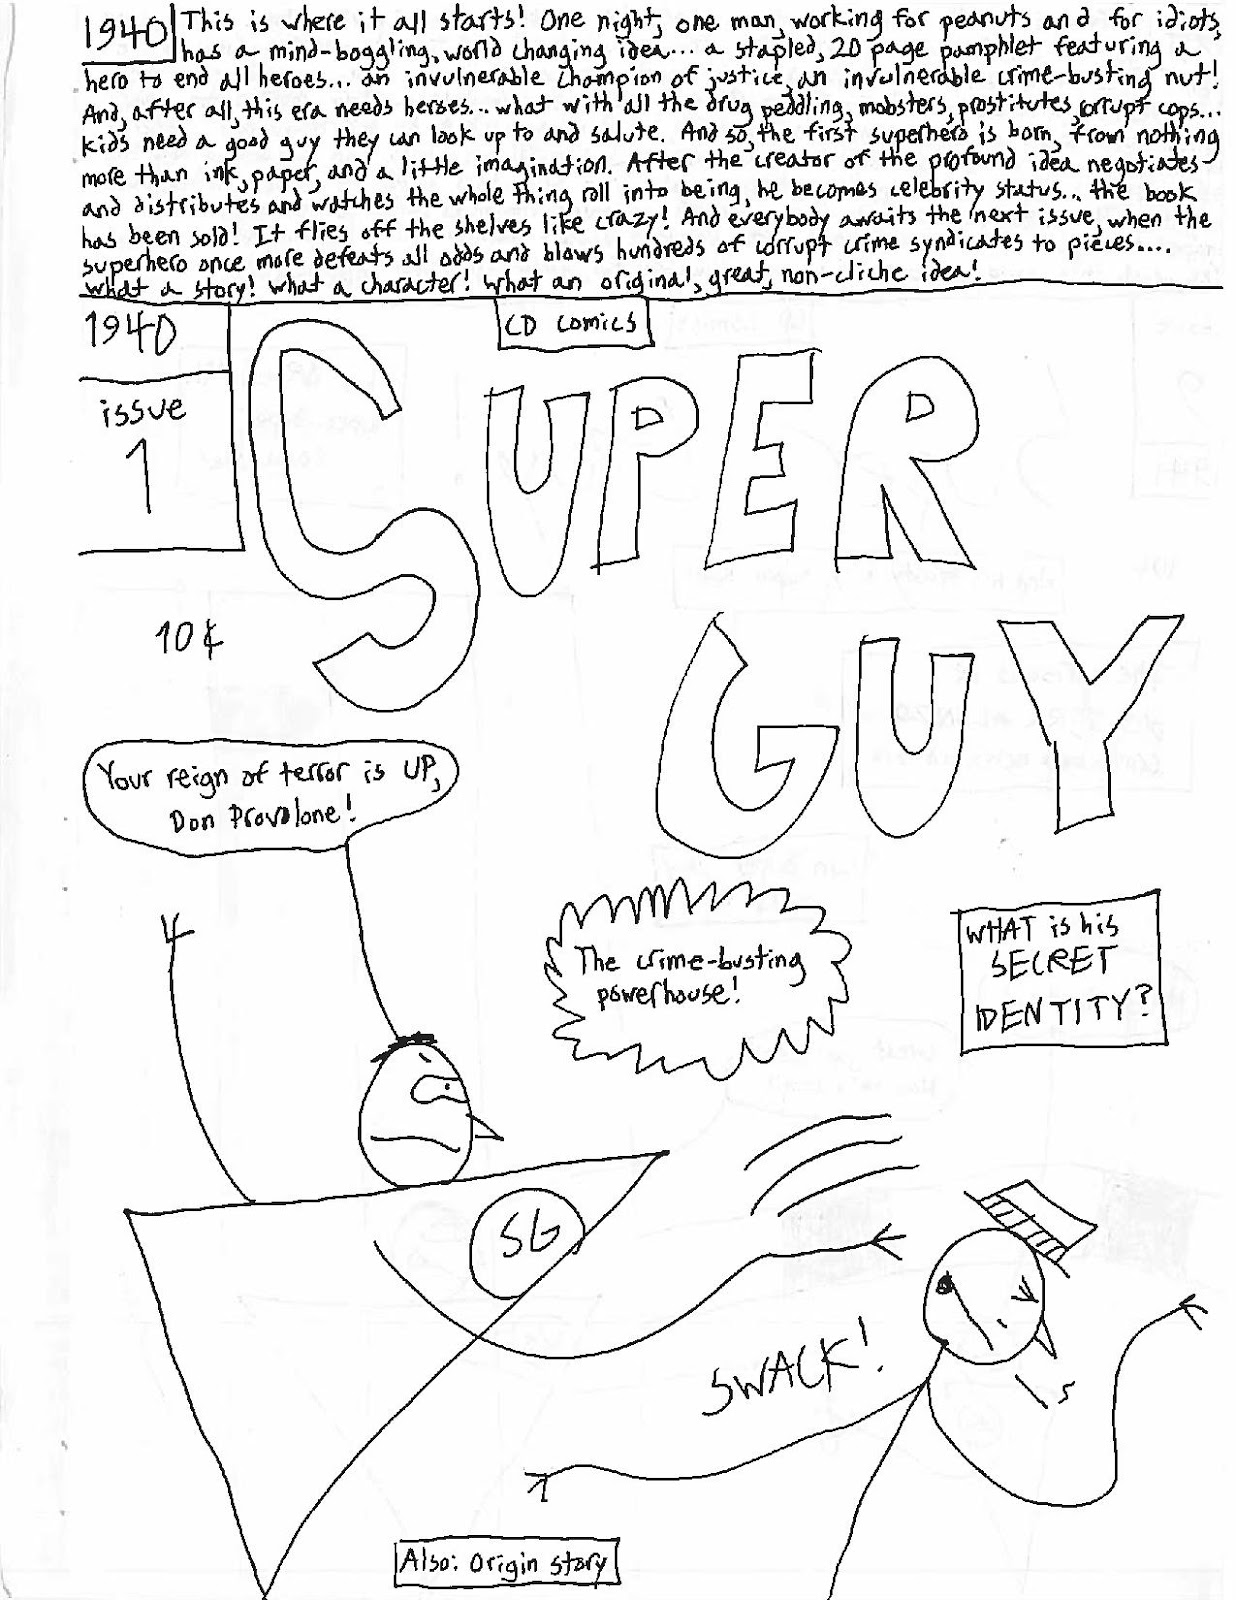 1940 This is where it all starts! One night, one man, working for peanuts and for idiots,
has a mind-boggling, world changing idea... a stapled, 20 page pamphlet featuring a
hero to end all heroes... an invulnerable champion of justice, an invulnerable crime-busting nut!
And, after all, this era needs heroes... what with all the drug peddling, mobsters, prostitutes, corrupt cops...
kids need a good guy they can look up to and salute. And so, the first superhero is born, from nothing
more than ink, paper, and a little imagination. After the creator of the profound idea negotiates
and distributes and watches the whole thing roll into being, he becomes celebrity status... the book
has been sold! It flies off the shelves like crazy! And everybody awaits the next issue, when the
superhero once more defeats all odds and blows hundreds of corrupt crime syndicates to pieces....
What a story! What a character! What an original, great, non-cliche idea!
1940
CD Comics
issue
1
SUPER
10¢
GUY
Your reign of terror is UP,
Don Provolone!
The crime-busting
powerhouse!
WHAT is his
SECRET
IDENTITY?
SG
SWACK!
Also: Origin story